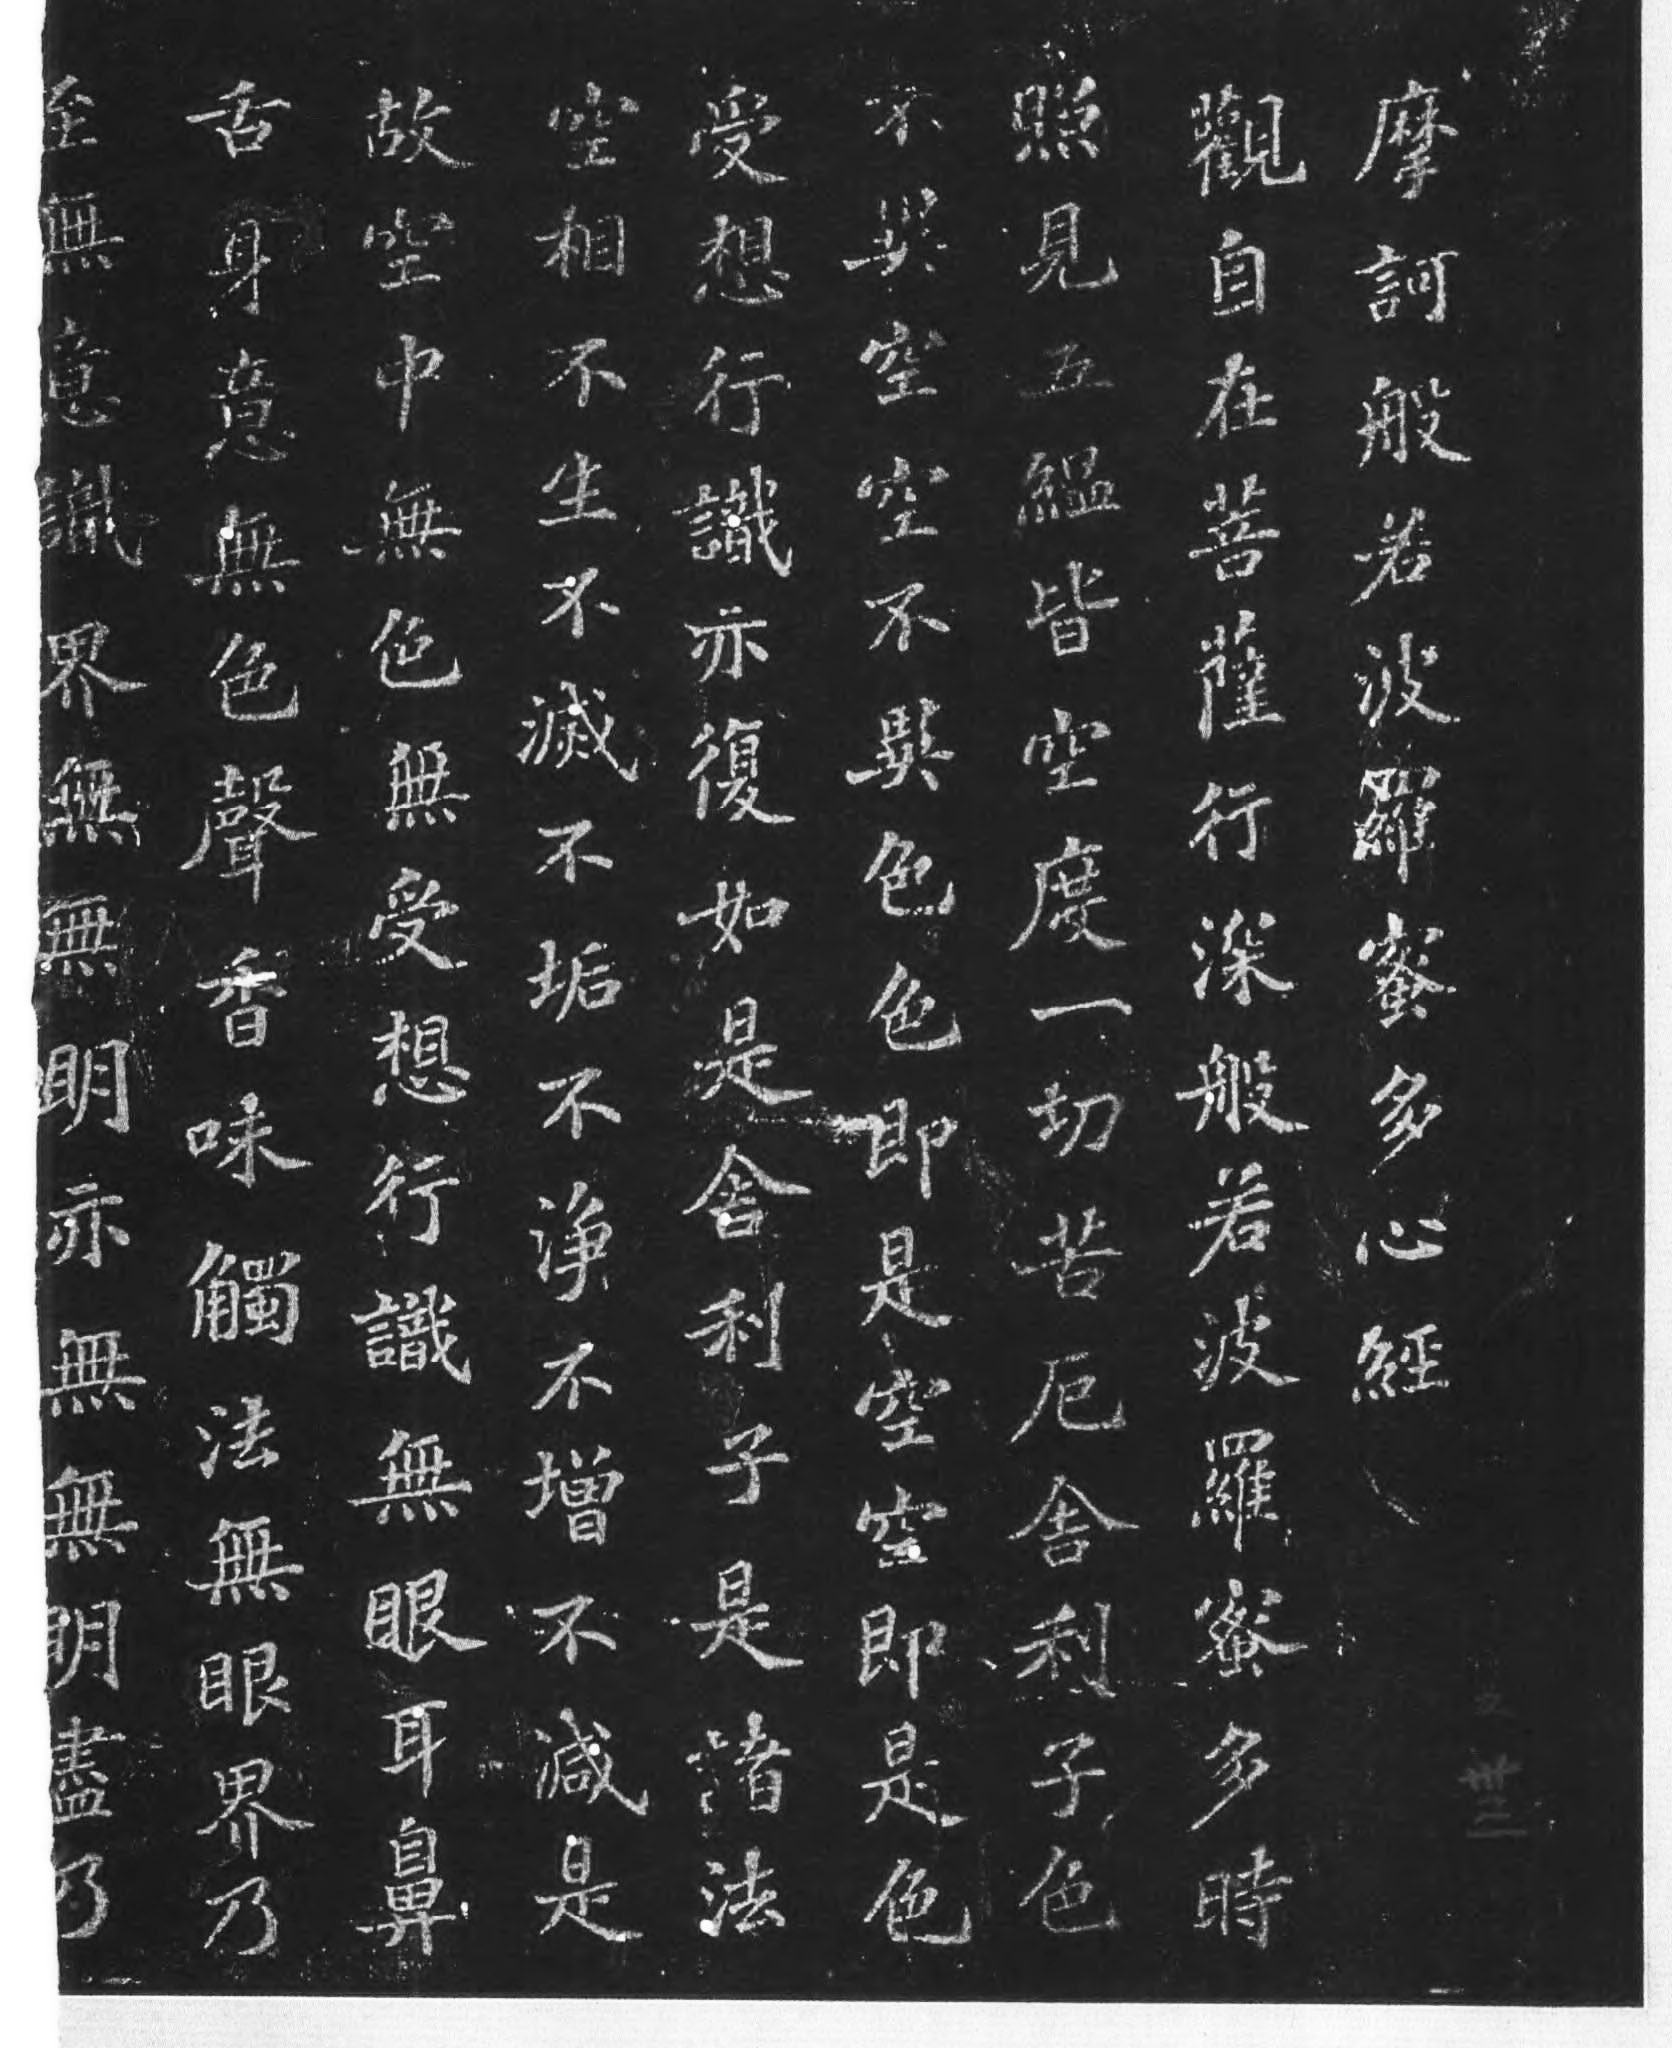 摩訶般若波羅蜜多心經
觀自在菩薩行深般若波羅蜜多時
照見五緼皆空度一切苦厄舎利子色
不異空空不異色色即是空空即是色
受想行識亦復如是舎利子是諸法
空相不生不滅不垢不淨不增不減是
故空中無色無受想行識無眼耳鼻
舌身意無色聲香味觸法無眼界乃
至無意識界無無明亦無無明盡乃